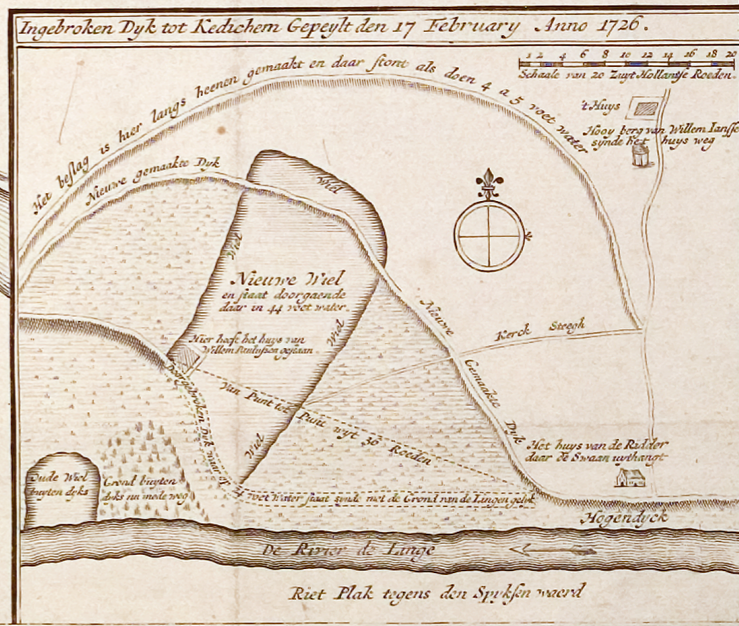 Ingebroken Dyk tot Kedichem Gepeylt den 17 February Anno 1726.
1 2 4 6 8 10 12 14 16 18 20
Schaale van 20 Zuyt Hollantse Roeden.
Het beslag is hier langs heenen gemaakt en daar stont als doen 4 a 5 voet water
't Huys
Hooy berg van Willem Ianssen
synde het huys weg
Nieuwe gemaakte Dyk
Wiel
Wiel
Nieuwe Wiel
en staat doorgaende
daar in 44 voet water
Wiel
Hier heeft het huys van
Willem Paulussen gestaan
Nieuwe Gemaakte Dyk
Kerck Steegh
Van Punt tot Punt wyt 30 Roeden
Doorgebroken Dyk waar op
4 voet water staat synde met de Grond van de Lingen gelyk
Wiel
Het huys van de Ridder
daar de Swaan uythangt
Oude Wiel
buyten dyks
Grond buyten
dyks nu mode weg
Hogendyck
De Rivier de Linge
Riet Plak tegens den Spyksen waerd